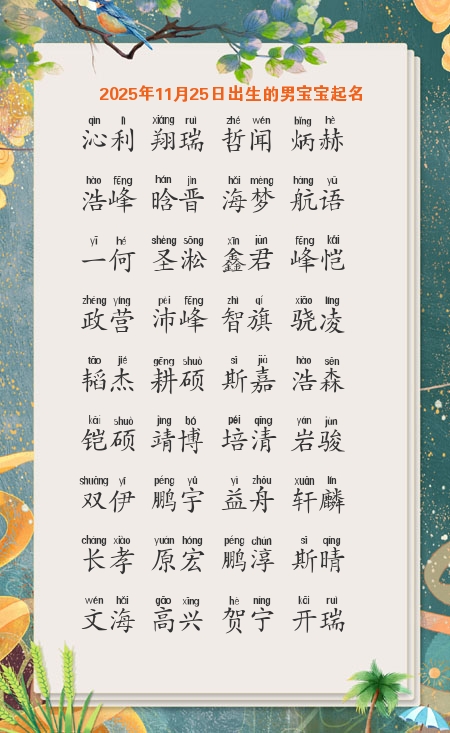 2025年11月25日出生的男宝宝起名
qìn lì xiáng ruì zhé wén bǐng hè
沁利 翔瑞 哲闻 炳赫
hào fēng hán jìn hǎi mèng háng yǔ
浩峰 晗晋 海梦 航语
yī hé shèng sōng xīn jūn fēng kǎi
一何 圣淞 鑫君 峰恺
zhèng yíng pèi fēng zhì qí xiāo líng
政营 沛峰 智旗 骁凌
tāo jié gēng shuò sī jiā hào sēn
韬杰 耕硕 斯嘉 浩森
kǎi shuò jìng bó péi qīng yán jùn
铠硕 靖博 培清 岩骏
shuāng yī péng yǔ yì zhōu xuān lín
双伊 鹏宇 益舟 轩麟
cháng xiào yuán hóng péng chún sī qíng
长孝 原宏 鹏淳 斯晴
wén hǎi gāo xīng hè níng kāi ruì
文海 高兴 贺宁 开瑞